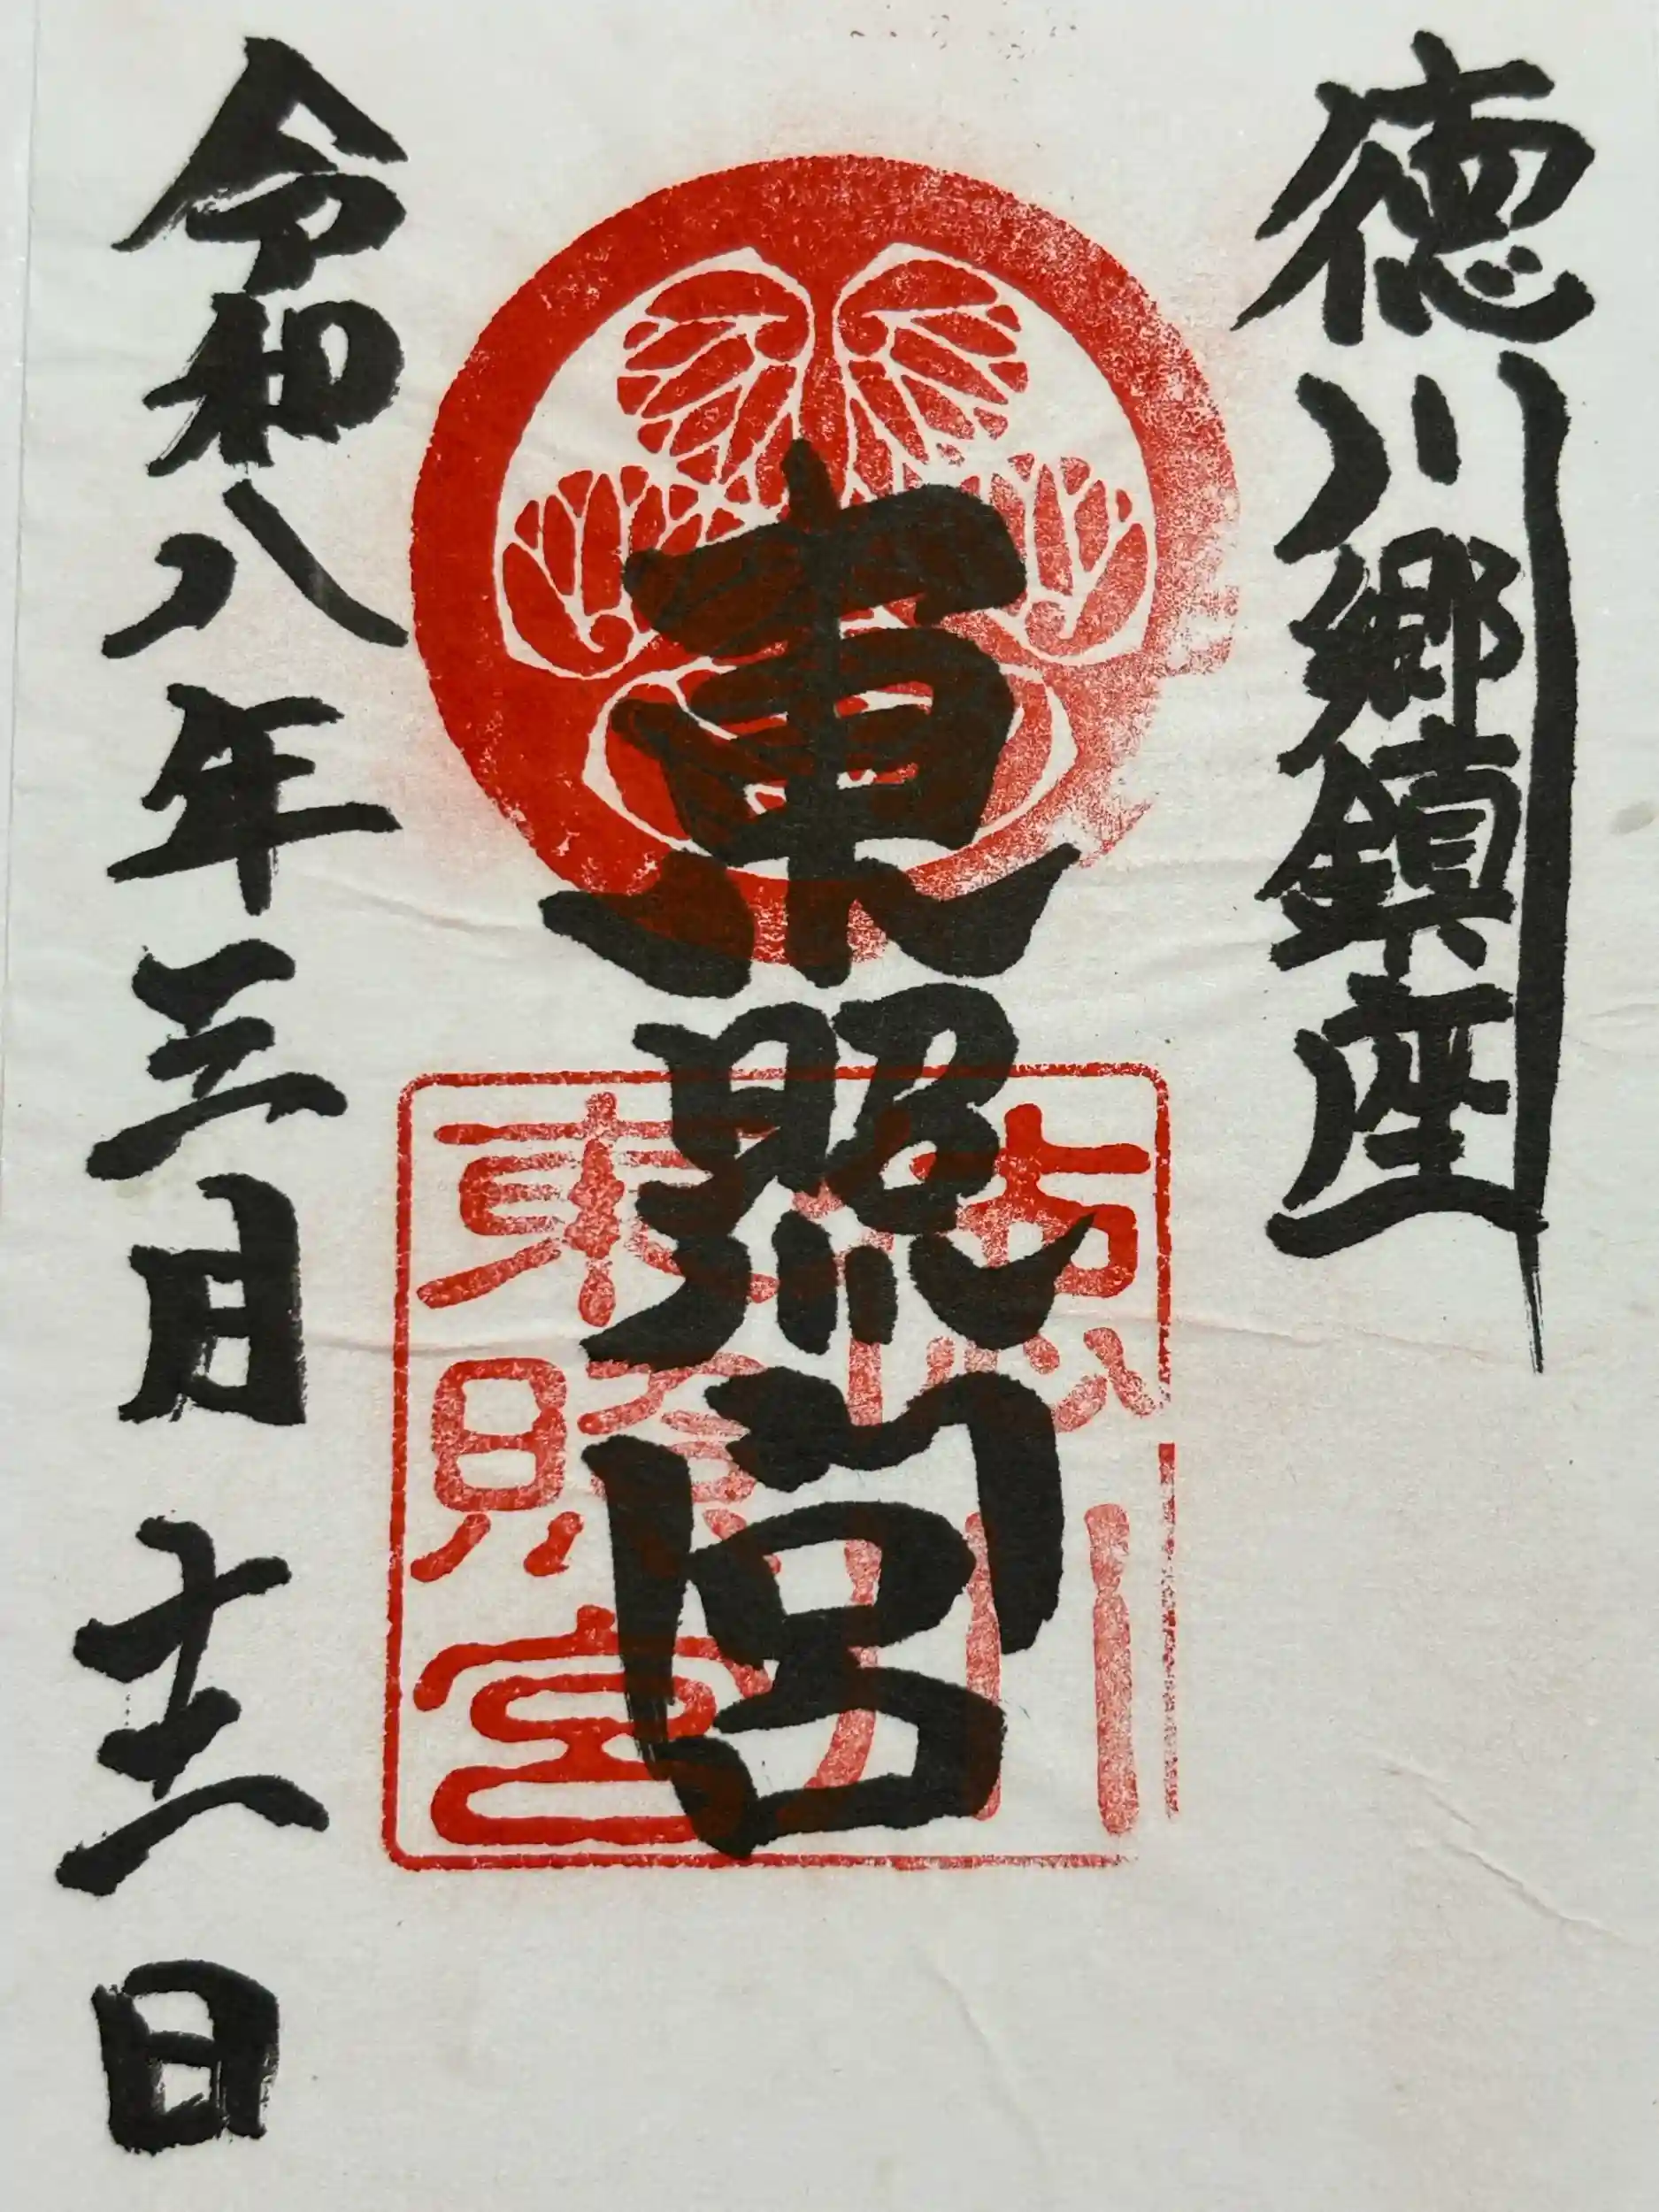 徳川郷鎮座
東照宮
令和八年三月十二日
徳川
東照宮